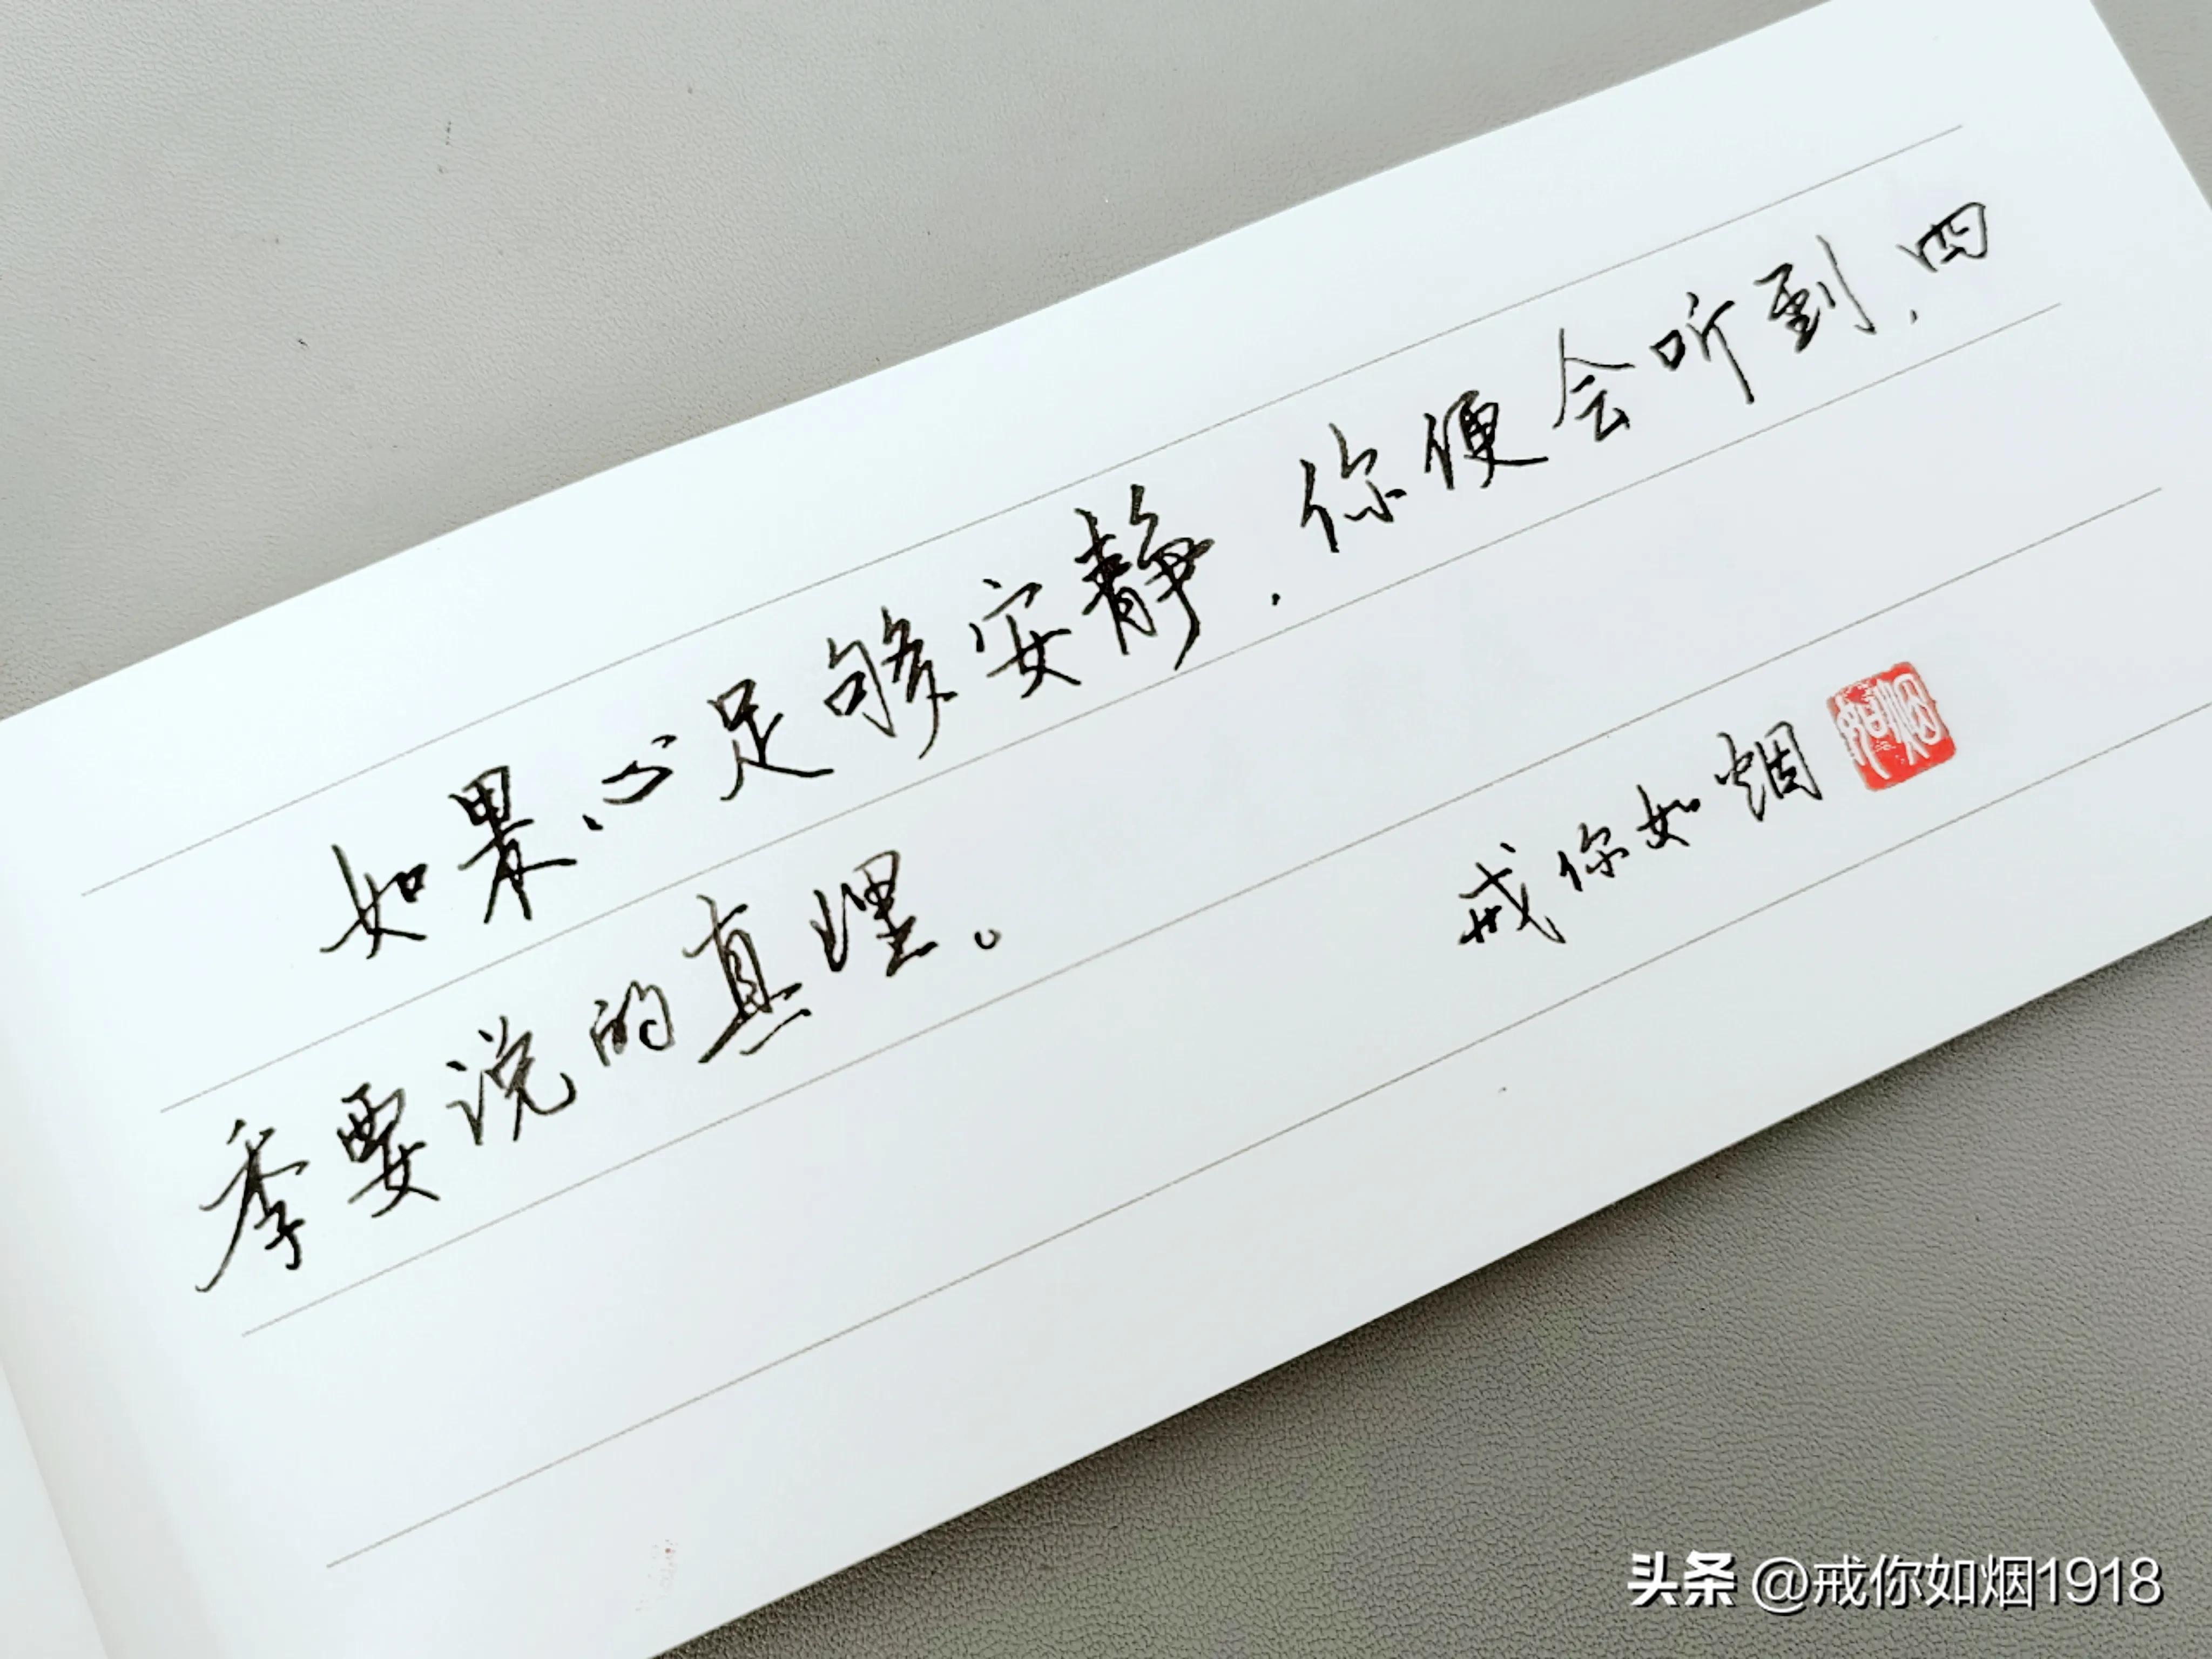 如果心足够安静，你便会听到，四
季要说的真理。
戒你如烟
如烟
头条 @戒你如烟1918